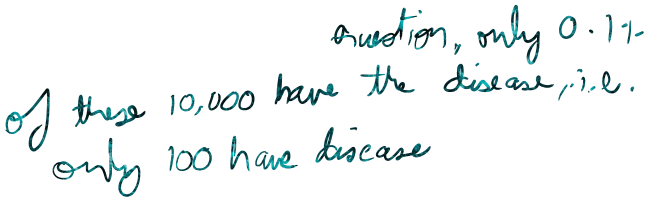 question, only 0.1%
of these 10,000 have the disease, i.e.
only 100 have disease